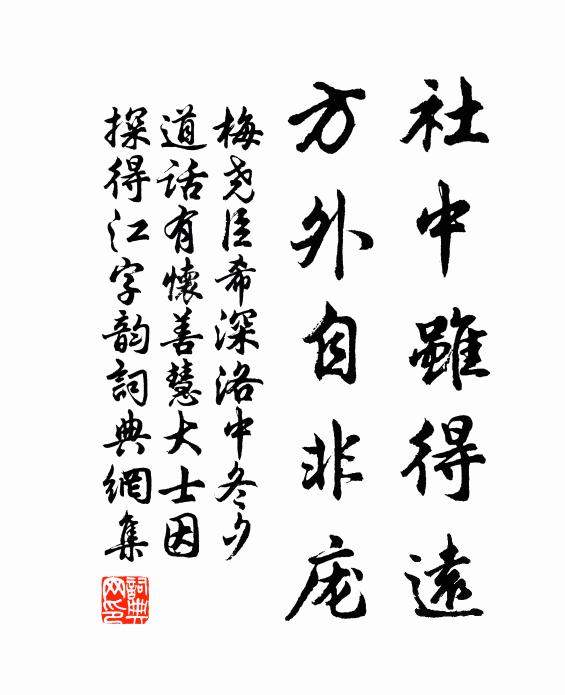 社中雖得遠
方外自非庞
梅尧臣希深洛中冬夕
道话有懷善慧大士因
探得江字韵詞典網集
詞典網印